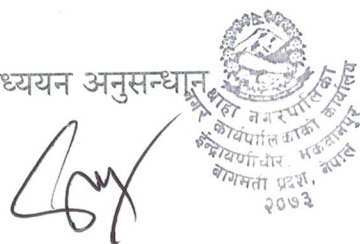 ध्ययन अनुसन्धान
थाहा नगरपालिका
नगर कार्यपालिकाको कार्यालय
ईन्द्रायणीचौर, मकवानपुर
बागमती प्रदेश, नेपाल
२०७३